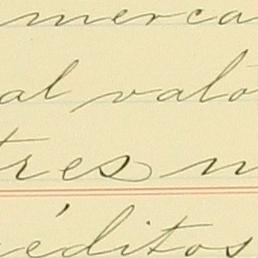 merca
al valo
tres n
éditos